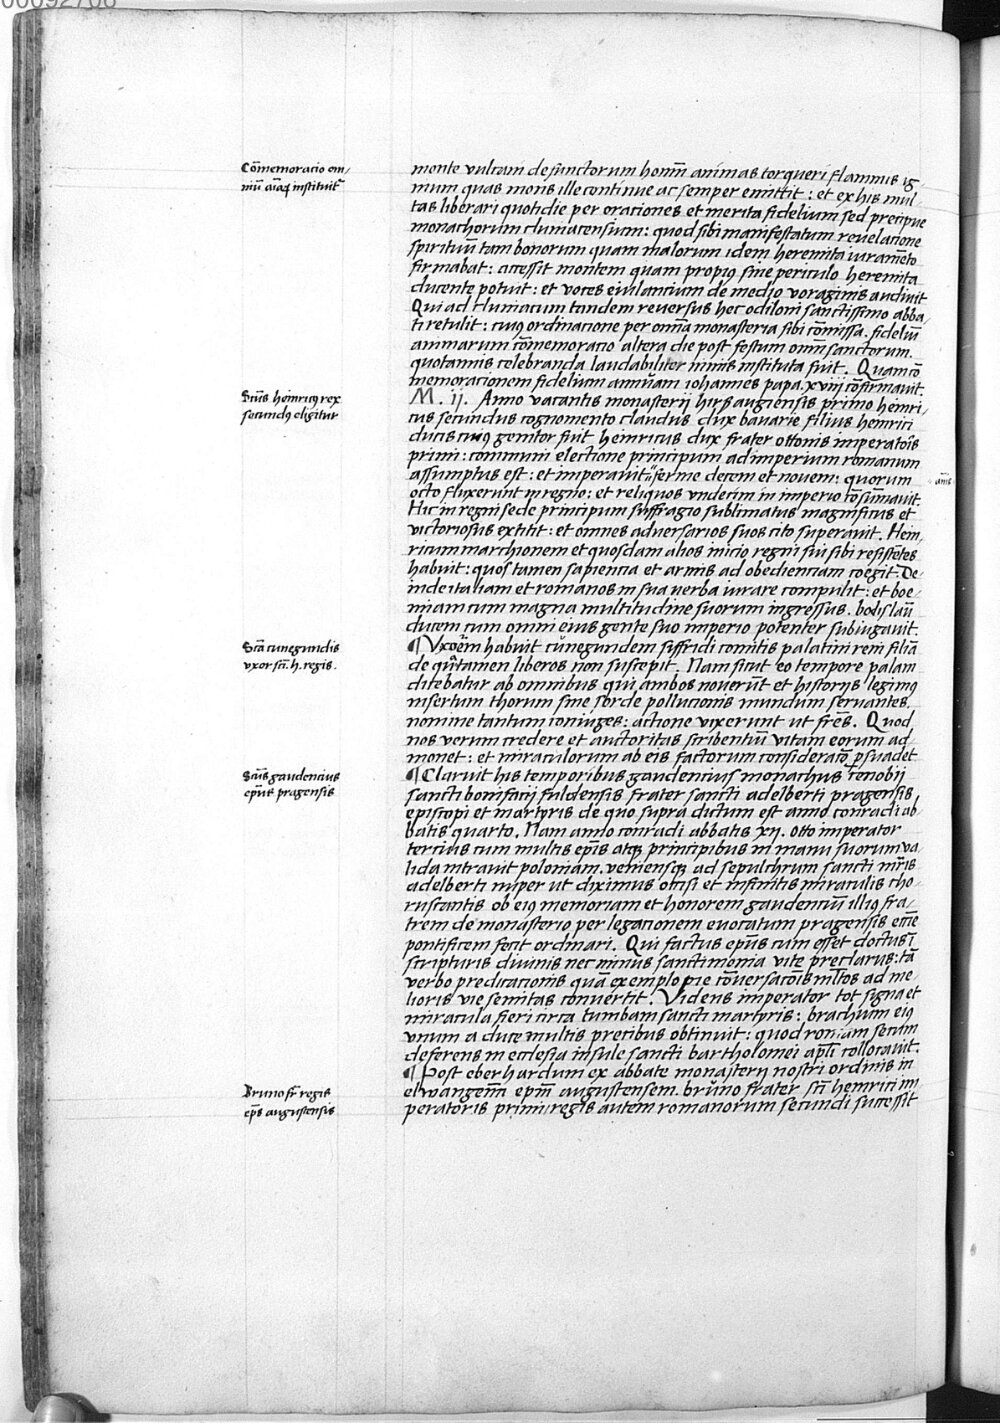 Cōmemoracio om/
niū aīarꝫ instituitᷣ
monte vulcani defunctorum homin̄ animas torqueri flammis ig-
nium quas mons ille continue ac semper emittit: et ex his mul-
tas liberari quotidie per orationes et merita fidelium sed precipue
monachorum cluniacensium: quod sibi manifestatum reuelacione
spirituū tam bonorum quam malorum idem heremita iuramēto
firmabat: accessit montem quam propiꝰ sine periculo heremita
ducente potuit: et voces eiulancium de medio voraginis audiuit
Qui ad cluniacum tandem reuersus hec odiloni sanctissimo abba/
ti retulit: cuiꝰ ordinacione per omnia monasteria sibi cōmissa. fideliū
animarum cōmemoracio altera die post festum omniū sanctorum.
quotannis celebranda laudabiliter nimis instituta fuit. Quam cō
memoracionem fidelium annuam iohannes papa. xviij cōfirmauit.
Scūs heinricꝰ rex
secundꝰ eligitur
M. ij. Anno vacantis monasterij hirsaugiensis primo heinri/
cus secundus cognomento claudus dux bauarie filius heinrici
ducis cuiꝰ genitor fuit heinricus dux frater ottonis imperatoris
primi: communi electione principum ad imperium romanum
assumptus est: et imperauit ferme decem et nouem: quorum
annis
octo fluxerunt in regno: et reliquos vndecim in imperio cōsummauit.
Hic in regni sede principum suffragio sublimatus magnificus et
victoriosus extitit: et omnes aduersarios suos cito superauit. Hein/
ricum marchionem et quosdam alios inicio regni sui sibi resistētes
habuit: quos tamen sapiencia et armis ad obedienciam coegit. De-
inde italiam et romanos in sua verba iurare compulit: et boe-
miam cum magna multitudine suorum ingressus. bolislaū
ducem cum omni eius gente suo imperio potenter subiugauit.
Scā cunegundis
vxor scī. h. regis.
¶ Vxorem habuit cunegundem siffridi comitis palatini reni filiā
de qua tamen liberos non suscepit. Nam sicut eo tempore palam
dicebatur ab omnibus qui ambos nouerūt et historijs legimꝰ
insertum thorum sine sorde pollucionis mundum seruantes.
nomine tantum coniuges: actione vixerunt ut frēs. Quod
nos verum credere et auctoritas scribentiū vitam eorum ad
monet: et miraculorum ab eis factorum consideratō ꝑsuadet
Scūs gaudencius
epūs pragensis
¶ Claruit his temporibus gaudencius monachus cenobij
sancti bonifacij fuldensis frater sancti adelberti pragensis
episcopi et martyris de quo supra dictum est anno conradi ab
batis quarto. Nam anno conradi abbatis xij. otto imperator
tercius cum multis epīs atqꝫ principibus in manu suorum va
lida intrauit poloniam. veniensqꝫ ad sepulchrum sancti mrīs
adelberti nuper ut diximus occisi et infinitis miraculis cho-
ruscantis ob eiꝰ memoriam et honorem gaudenciū illiꝰ fra/
trem de monasterio per legacionem euocatum pragensis ecc̄ie
pontificem fecit ordinari. Qui factus epūs cum esset doctus ī
scripturis diuinis nec minus sanctimonia vite preclarus: tā
verbo predicacionis quā exemplo pie cōuersacōis mltos ad me
lioris vie semitas conuertit. Videns imperator tot signa et
miracula fieri circa tumbam sancti martyris: brachium eiꝰ
vnum a duce multis precibus obtinuit: quod romam secum
deferens in ecclesia insule sancti bartholomei apl̄i collocauit.
¶ Post eberhardum ex abbate monasterij nostri ordinis in
Bruno fr̄ regis
epūs augustensis
elwangenn epm̄ augustensem. brūno frater scī heinrici im
peratoris primi regis autem romanorum secundi successit